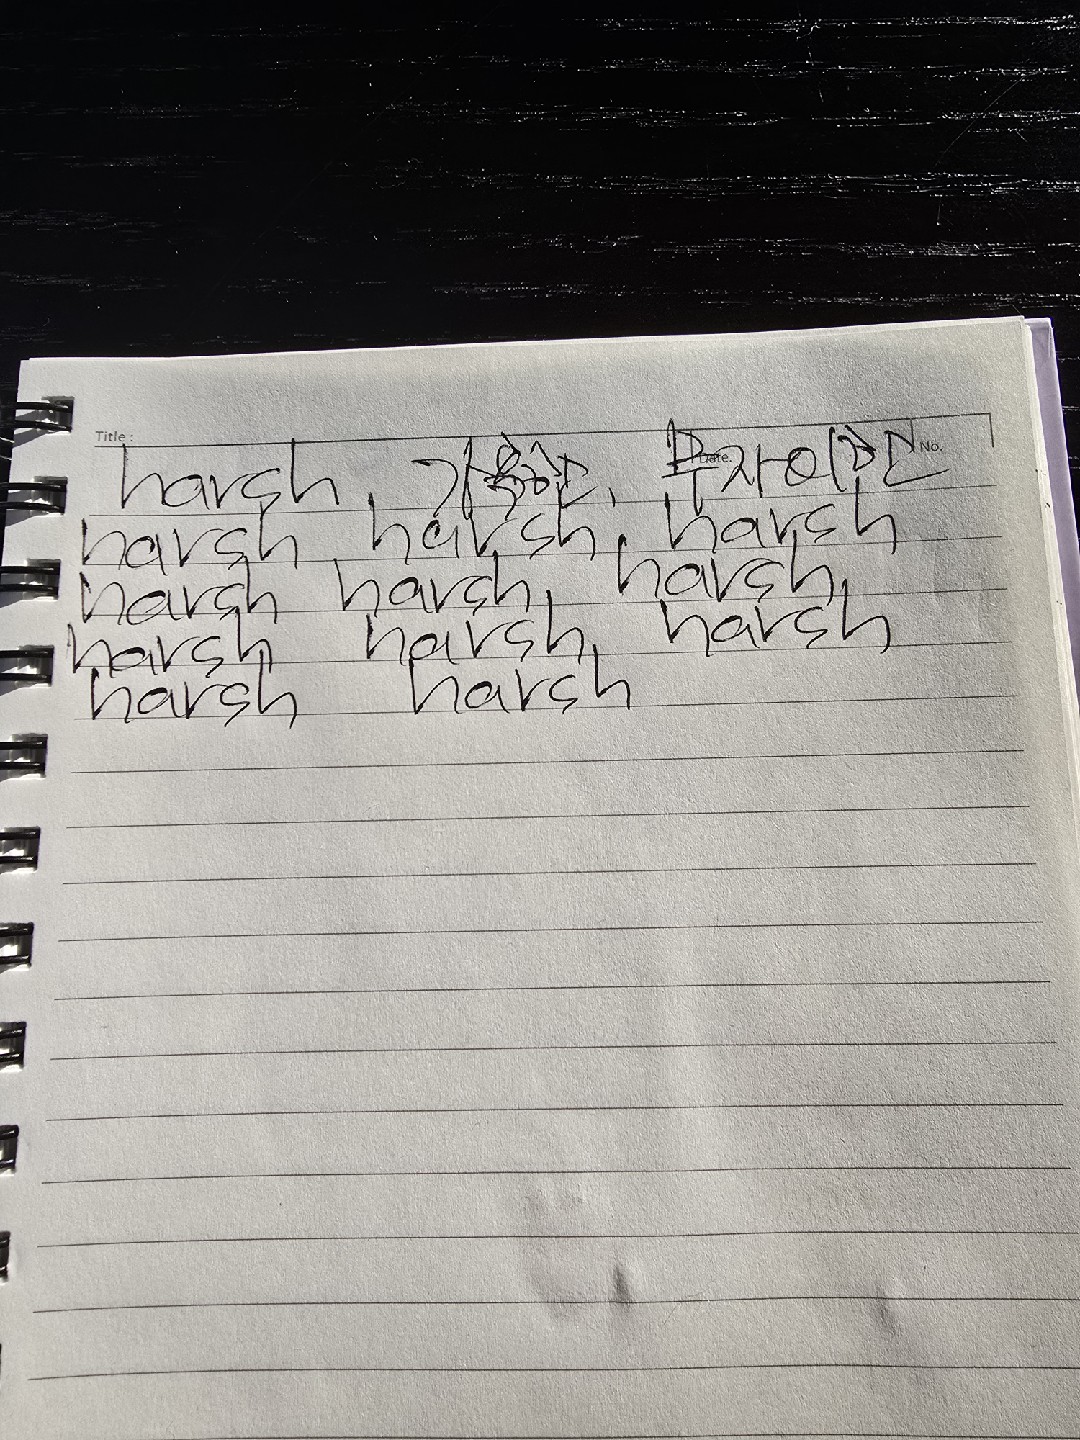 Title : Date. No.
harsh, 가혹한, 무자비한
harsh harsh, harsh
harsh harsh, harsh,
harsh harsh, harsh
harsh harsh